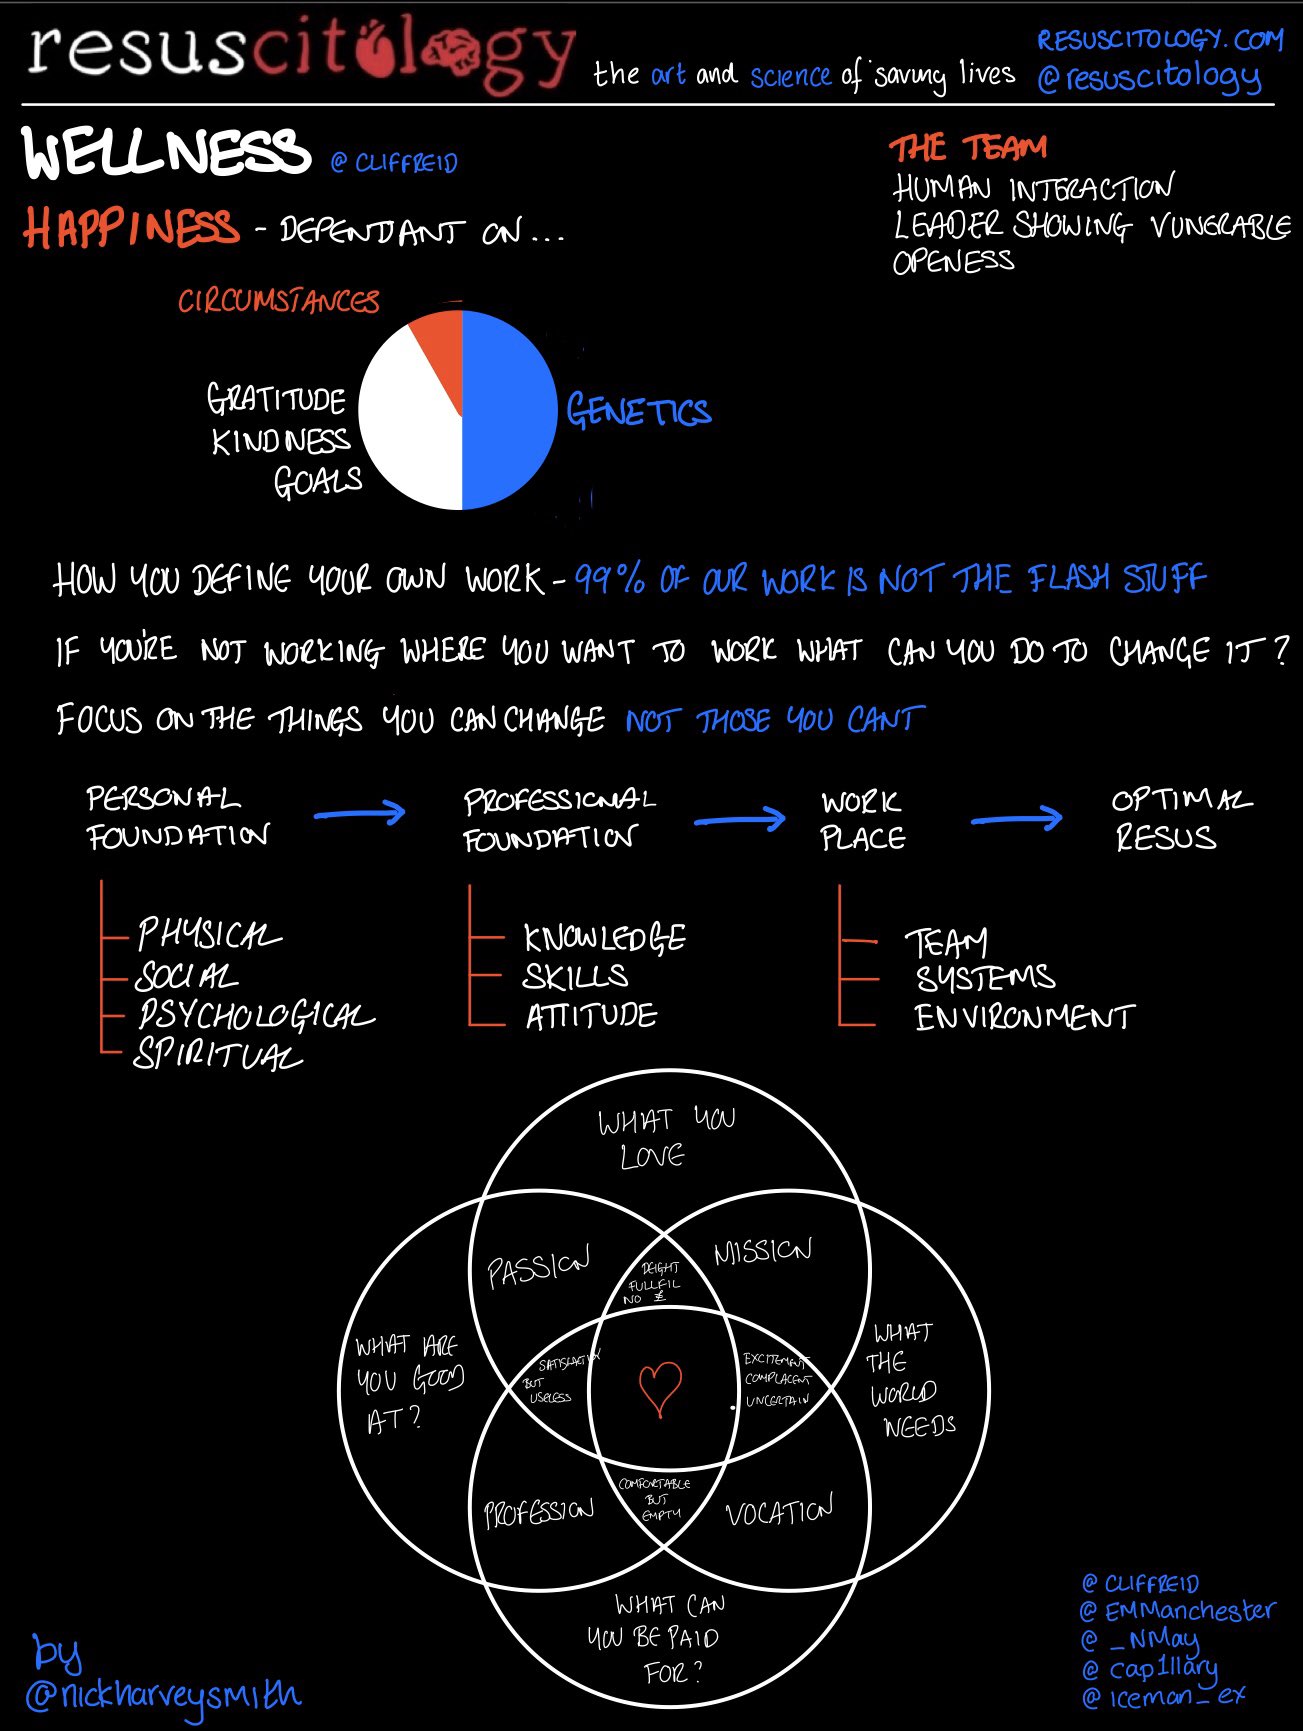 resuscitology
the art and science of saving lives
RESUSCITOLOGY.COM
@resuscitology
WELLNESS @CLIFFREID
HAPPINESS - DEPENDANT ON...
THE TEAM
HUMAN INTERACTION
LEADER SHOWING VUNERABLE
OPENESS
CIRCUMSTANCES
GRATITUDE
KINDNESS
GOALS
GENETICS
HOW YOU DEFINE YOUR OWN WORK - 99% OF OUR WORK IS NOT THE FLASH STUFF
IF YOU'RE NOT WORKING WHERE YOU WANT TO WORK WHAT CAN YOU DO TO CHANGE IT?
FOCUS ON THE THINGS YOU CAN CHANGE NOT THOSE YOU CANT
PERSONAL
FOUNDATION
PHYSICAL
SOCIAL
PSYCHOLOGICAL
SPIRITUAL
PROFESSIONAL
FOUNDATION
KNOWLEDGE
SKILLS
ATTITUDE
WORK
PLACE
TEAM
SYSTEMS
ENVIRONMENT
OPTIMAL
RESUS
WHAT YOU
LOVE
PASSION
MISSION
DEIGHT
FULLFIL
NO £
WHAT ARE
YOU GOOD
AT?
SATISFACTION
BUT
USELESS
EXCITEMENT
COMPLACENT
UNCERTAIN
WHAT
THE
WORLD
NEEDS
PROFESSION
COMFORTABLE
BUT
EMPTY
VOCATION
WHAT CAN
YOU BE PAID
FOR?
by
@nickharveysmith
@ CLIFFREID
@ EMManchester
@ _NMay
@ cap1llary
@ iceman_ex